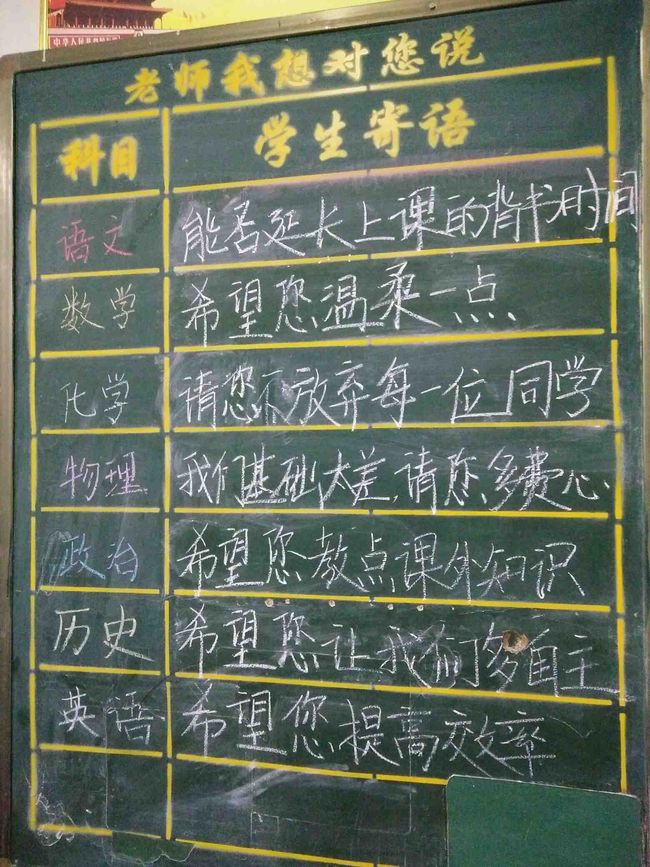 中华人民共和国
老师我想对您说
科目 学生寄语
语文 能否延长上课的背书时间
数学 希望您温柔一点
化学 请您不放弃每一位同学
物理 我们基础太差,请您多费心.
政治 希望您教点课外知识
历史 希望您让我们多自主
英语 希望您提高效率